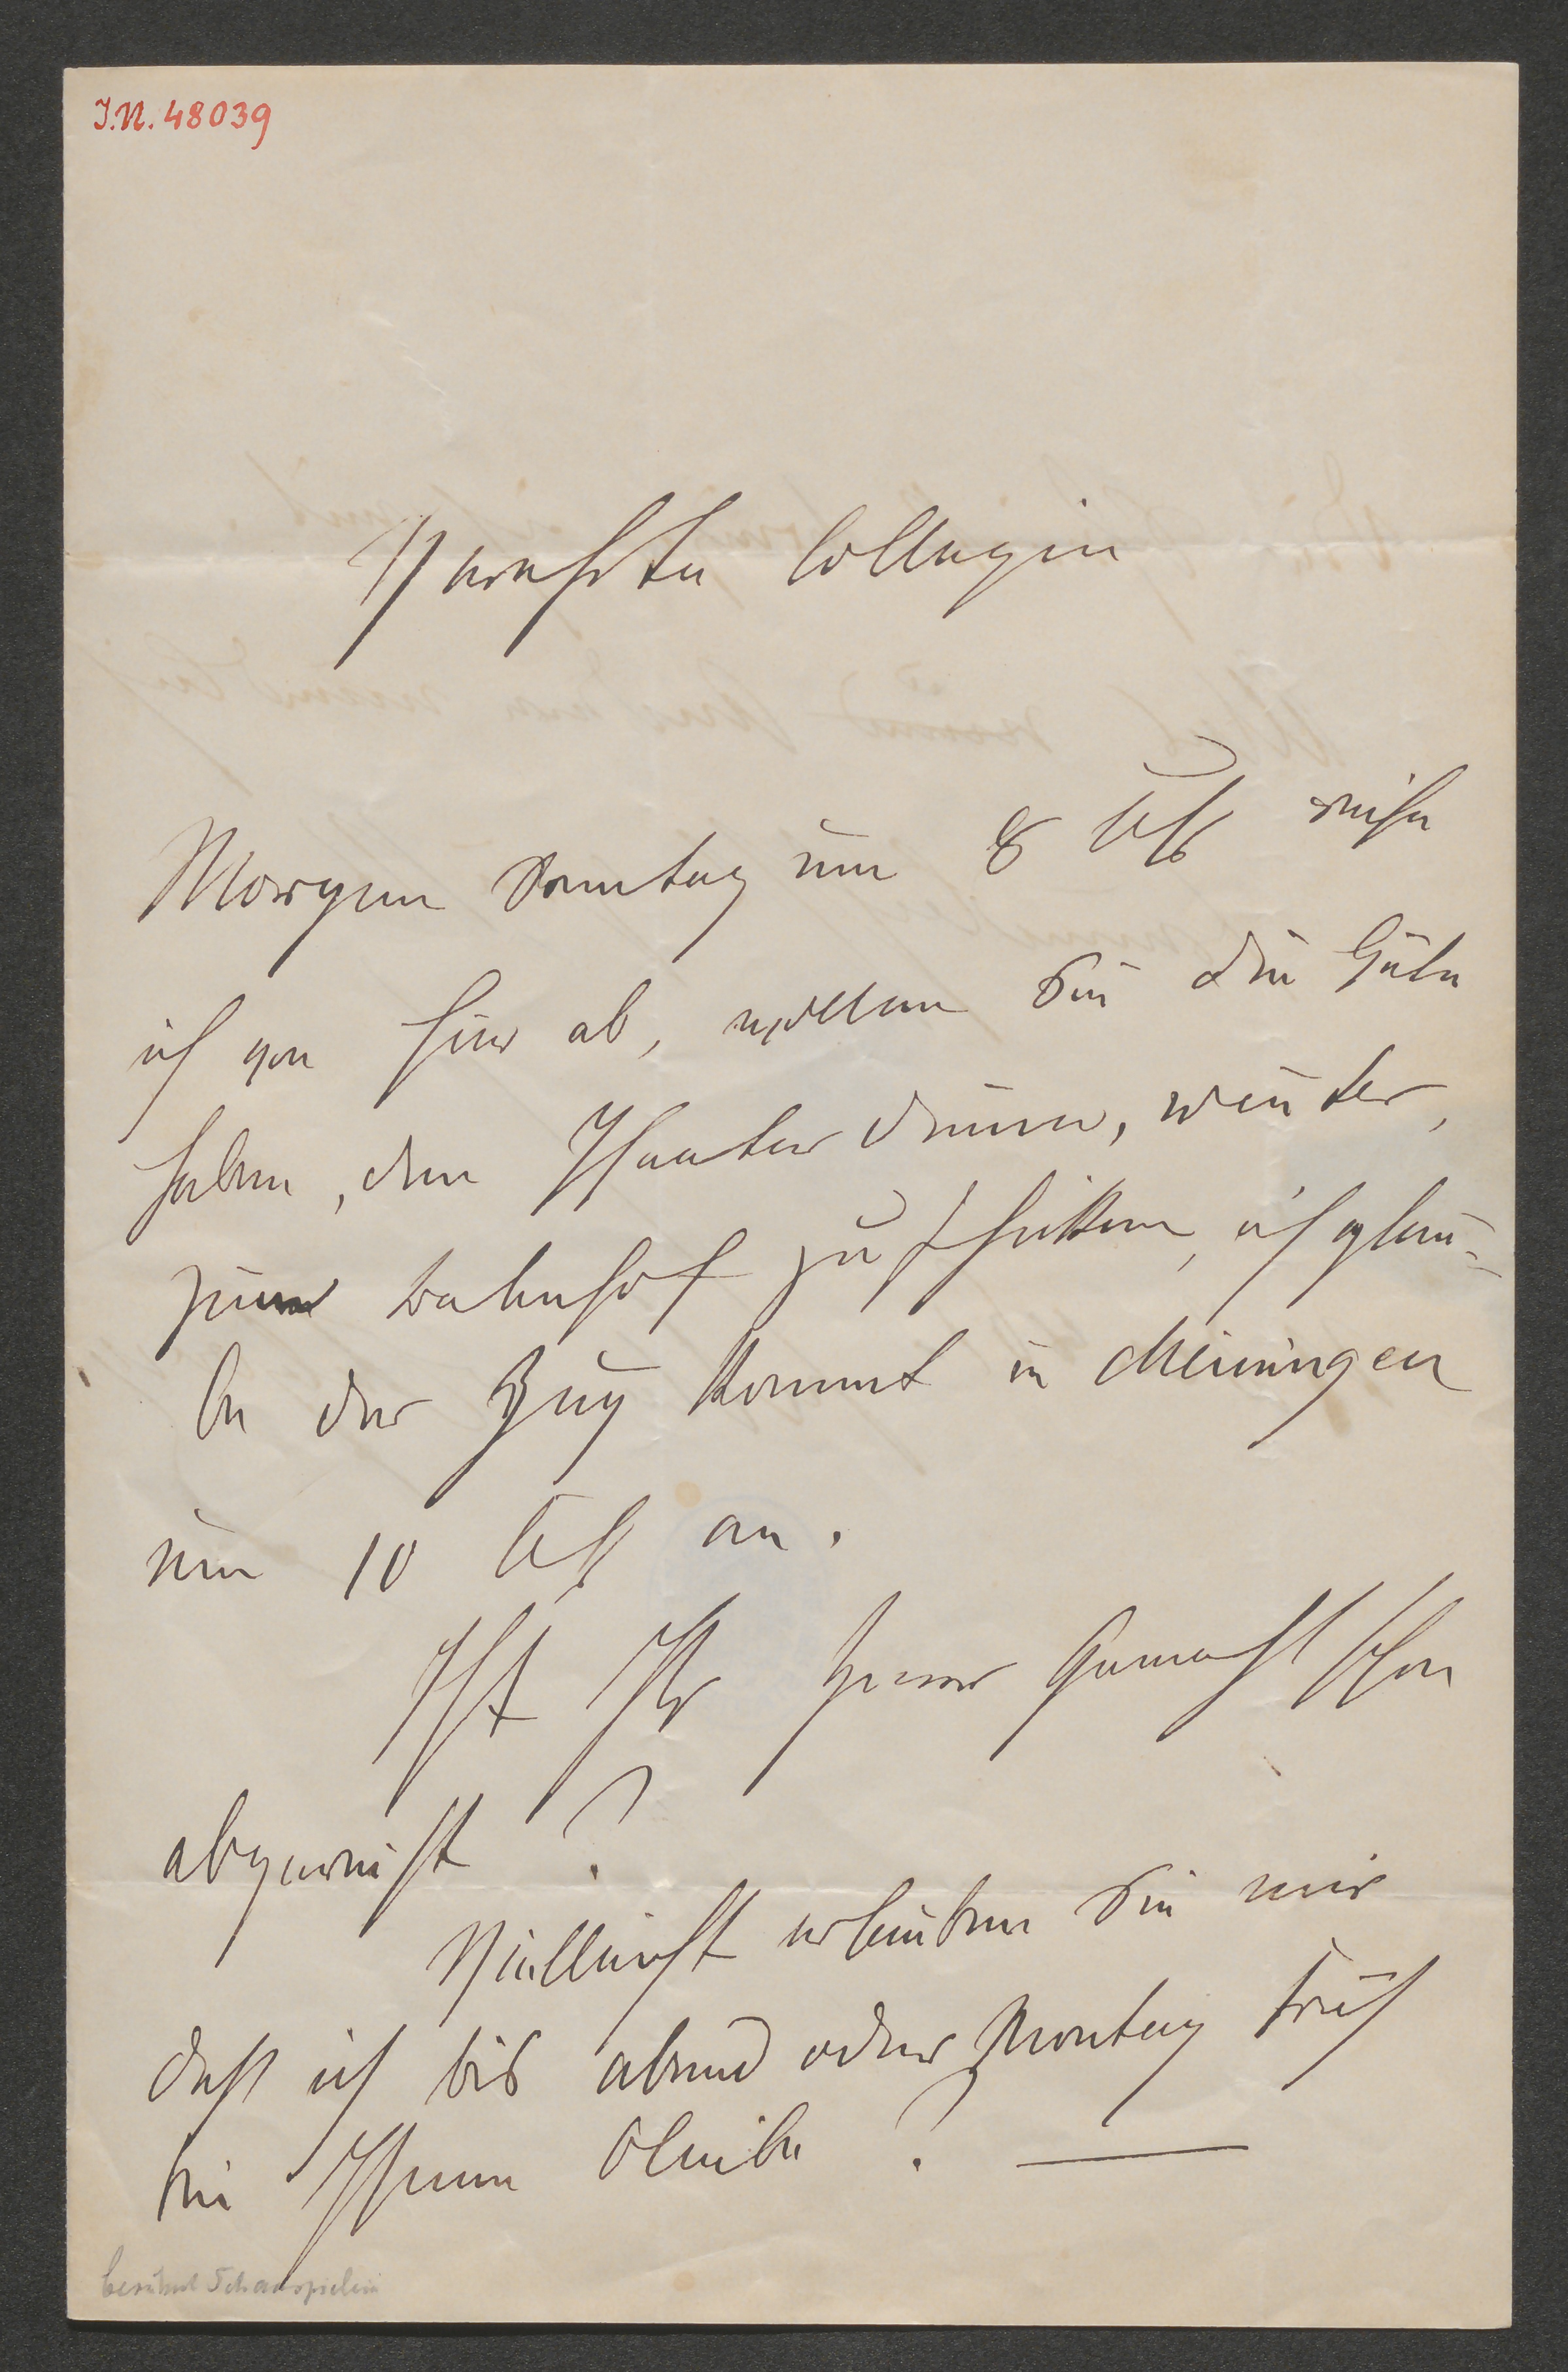 I.N. 48039
Verehrte Collegin
Morgen Sonntag um 8 Uhr reise
ich von hier ab, wollen Sie die Güte
haben, den Theater diener,
zum Bahnhof zu schikken, ich glau-
be der Zug kommt in Meiningen
um 10 Uhr an.
Ist Ihr Herr Gemahl schon
abgereist?
Vielleicht erlauben Sie mir
daß ich bis abend oder Montag früh
bei Ihnen bleibe? —
berühmt Schauspielerin